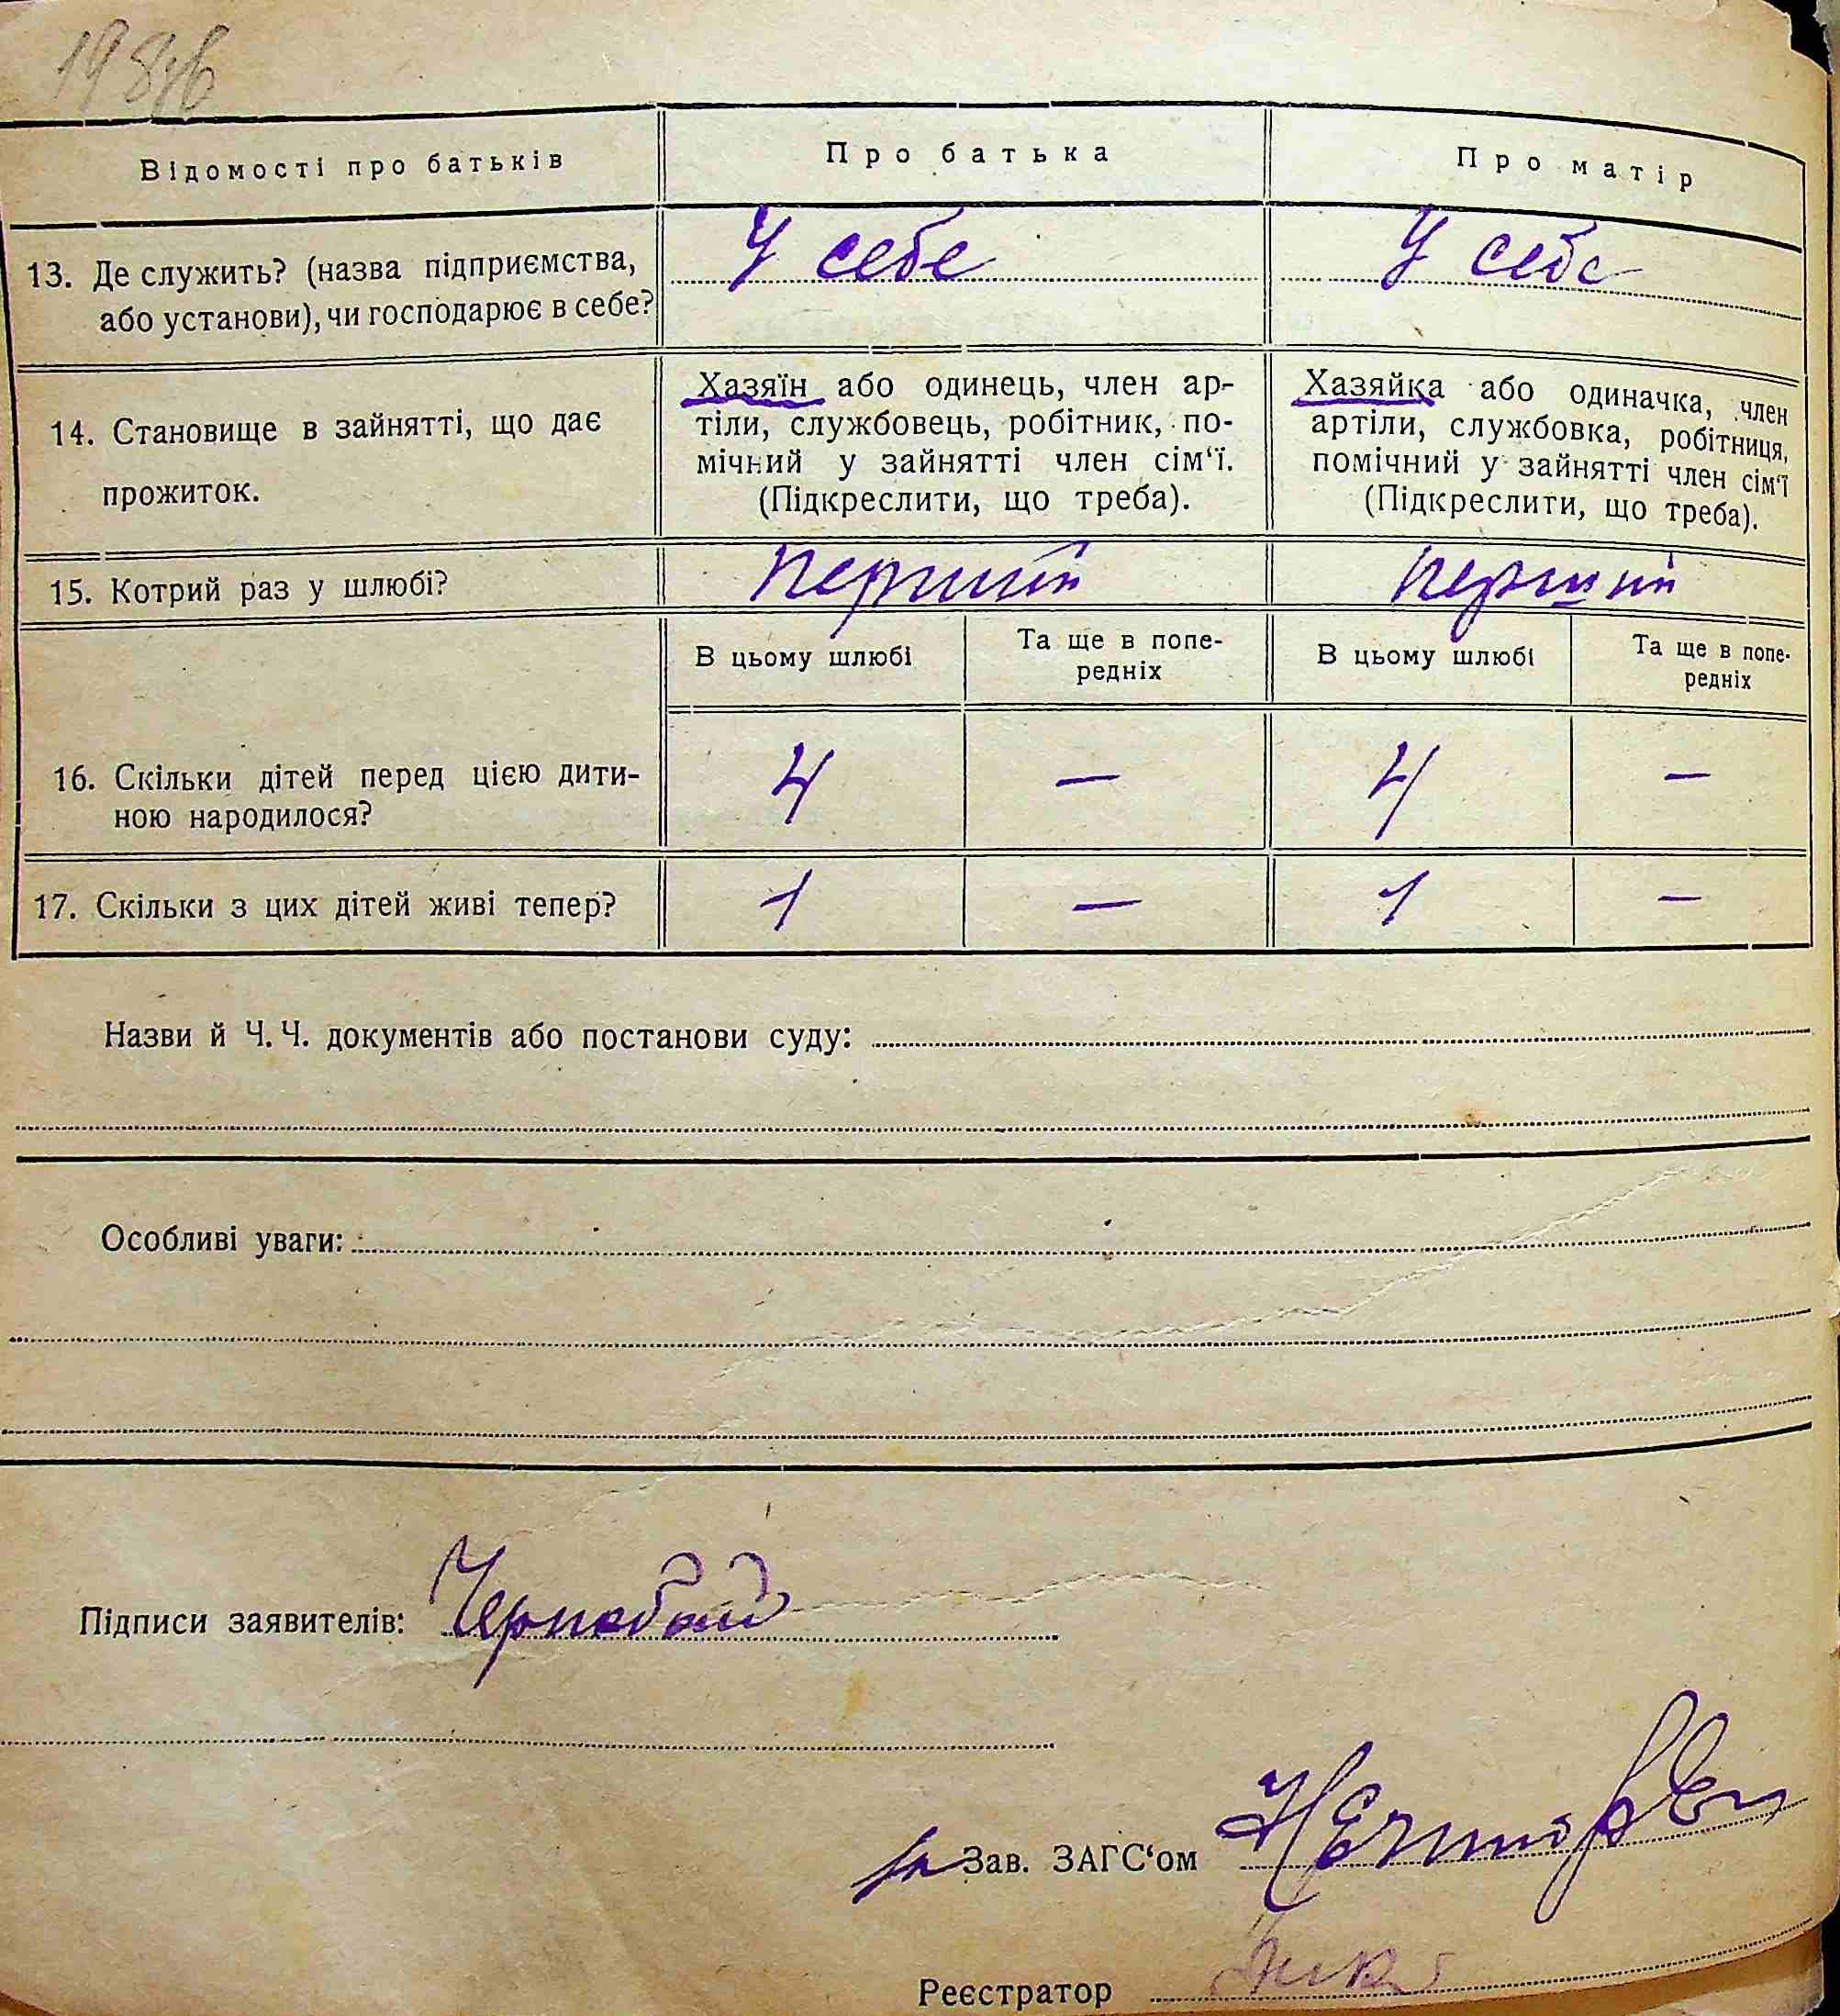 Відомості про батьків
Про батька
Про матір
13. Де служить? (назва підприємства,
або установи), чи господарює в себе?
У себе
У себе
14. Становище в зайнятті, що дає
прожиток.
Хазяїн або одинець, член ар-
тіли, службовець, робітник, по-
мічний у зайнятті член сім‘ї.
(Підкреслити, що треба).
Хазяйка або одиначка, член
артіли, службовка, робітниця,
помічний у зайнятті член сім‘ї
(Підкреслити, що треба).
15. Котрий раз у шлюбі?
перший
перший
В цьому шлюбі
Та ще в попе-
редніх
В цьому шлюбі
Та ще в попе-
редніх
16. Скільки дітей перед цією дити-
ною народилося?
4
—
4
—
17. Скільки з цих дітей живі тепер?
1
—
1
—
Назви й Ч. Ч. документів або постанови суду:
Особливі уваги:
Підписи заявителів:
Зав. ЗАГС‘ом
Реєстратор